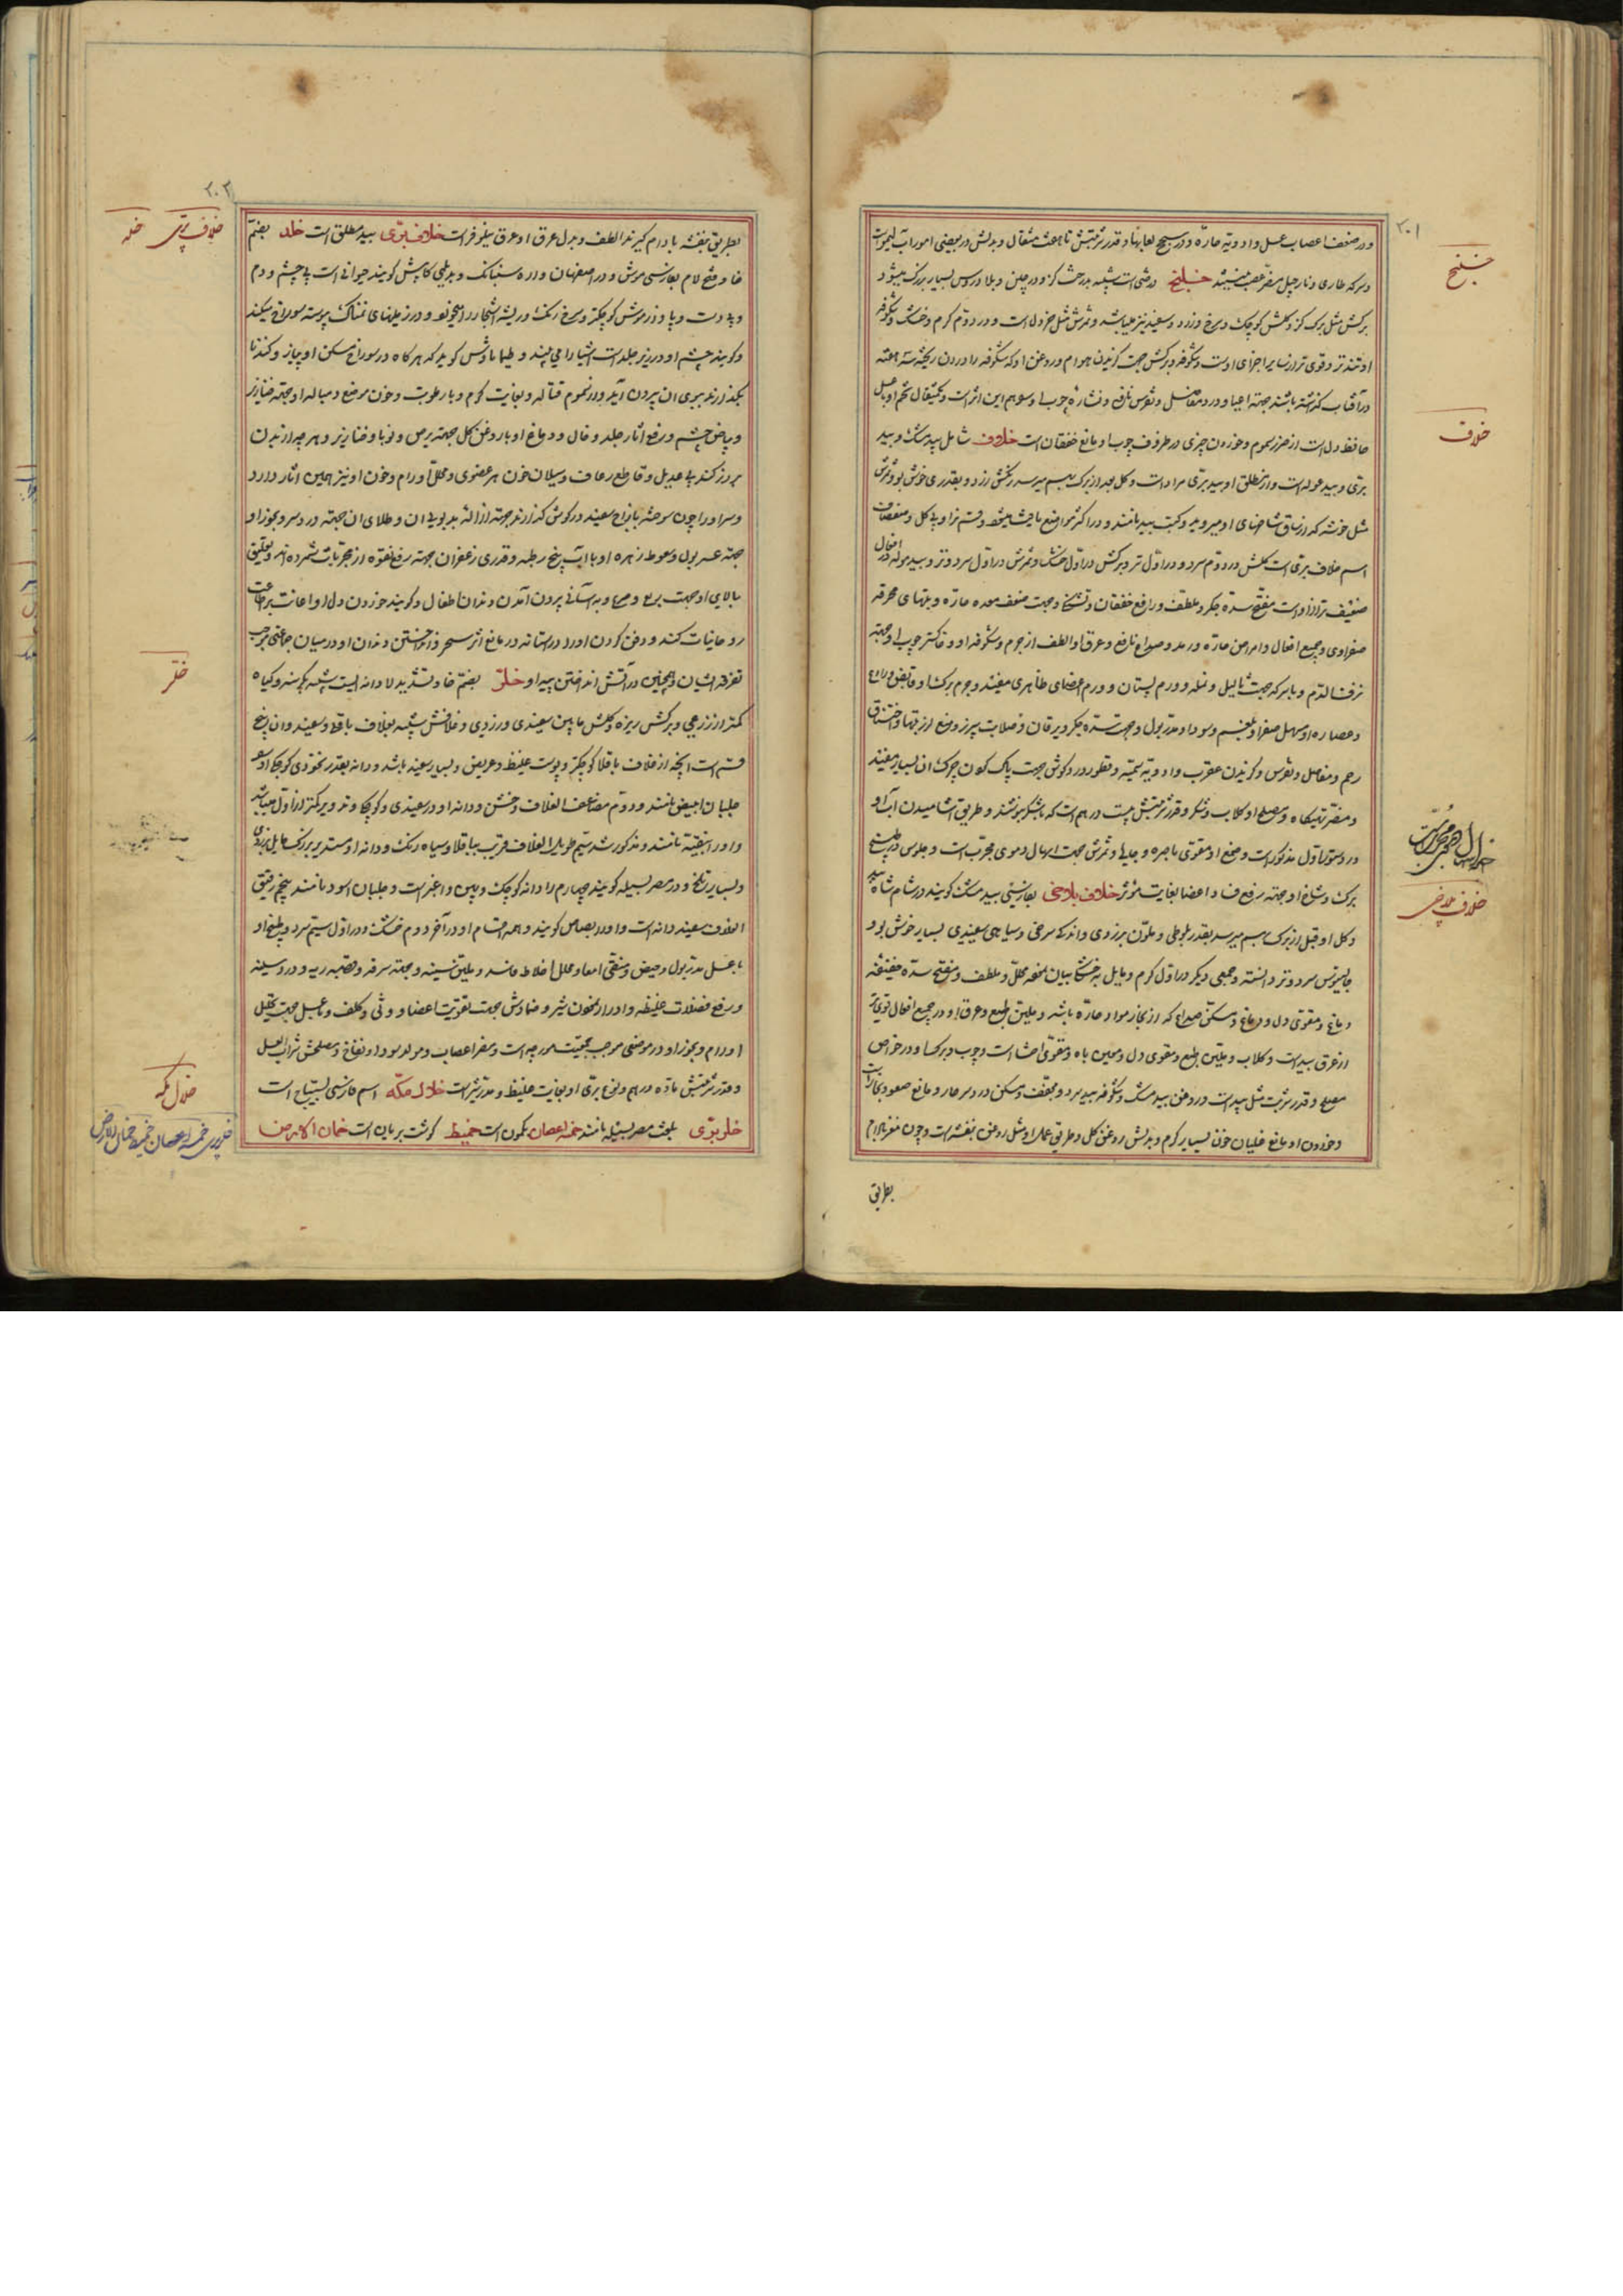 ۳۰۱
و در ضعف اعصاب عسل و ادویه حاره و در سحج لعابها و قدر شربتش تا هفت مثقال و بدلش در بعضی امور آب لیموست
و سرکه طاری و نارجیل مضر عصب میباشد خلنج درختی است شبیه بدرخت کز و در چین و بلاد روس بسیار بزرک میشود
برکش مثل برک کز و کلش کوچک و سرخ و زرد و سفید نیز میباشد و ثمرش مثل خردل است و در دوم کرم و خشک و شکوفه
او تندتر و قوی تر از سایر اجزای اوست و شکوفه و برکش جهت کزیدن هوام و روغن او که شکوفه را در روغن ریخته سه هفته
در آفتاب کذاشته باشند جهة اعیا و درد مفاصل و نقرس نافع و نشاره چوب او سوهم این اثر است و یکمثقال تخم او با عسل
حافظ دل است از ضرر سموم و خوردن چیزی در ظروف چوب او مانع خفقان است خلاف شامل بید مشک و بید
بری و بید موله است و از مطلق او بید بری مراد است و کل بید از برک بهم میرسد رنکش زرد و بقدری خوش بو و ثمرش
مثل خوشه که از ساق شاخهای او میروید و کتب بید نامند و در اکثر مواضع یافت میشود و قسم نر او بی کل و صفصاف
اسم خلاف بری است کلش در دوم سرد و در اول تر و برکش در اول خشک و ثمرش در اول سرد و تر و بید موله در افعال
ضعیف تر از اوست مفتح سده جکر و ملطف و رافع خفقان و تشنکی و جهت ضعف معده حاره و تبهای محرقه
صفراوی و جمیع افعال و امراض حاره و رمد و صداع نافع و عرق او الطف از جرم و شکوفه او و خاکستر چوب او جهة
نزف الدم و با سرکه جهت ثالیل و نمله و ورم پستان و ورم اعضای ظاهری مفید و جرم برک او قابض و رادع
و عصاره او مسهل صفرا و بلغم و سودا و مدر بول و جهت سده جکر و یرقان و صلابت سپرز و منع لرز تبها و اختناق
رحم و مفاصل و نقرس و کزیدن عقرب و ادویه سمیه و قطور در کوش جهت پاک کردن چرک آن بسیار مفید
و مضر تهیکاه و مصلح او کلاب و شکر و قدر شربتش بیست درهم است که با شکر بنوشند و طریق آشامیدن آب او
در دستور اول مذکور است و صمغ او مقوی باصره و جلیها و ثمرش جهت اسهال دموی مجرب است و جلوس در طبیخ
برک و شاخ او جهة رفع فساد اعضا بغایت مؤثر خلاف بلخی بفارسی بید مشک کویند در شام شاه بید
و کل او قبل از برک بهم میرسد بقدر بلوطی و ملون بزردی و اندک سرخی و سیاهی سفیدی بسیار خوش بو و
جالینوس سرد و تر دانسته و جمعی دیکر در اول کرم و مایل به خشکی بیان نموده محلل و ملطف و مفتح سده خفیفه
دماغ و مقوی دل و دماغ و مسکن صداع که از بخار مواد حاره باشد و ملین طبع و عرق او در جمیع افعال قوی تر
از عرق بید است و کلاب و ملین طبع و مقوی دل و معین باه و مقوی احشا است و چوب و برک او در خواص
مصلح و قدر شربت مثل بید است و روغن بید مشک و شکوفه بید سرد و مجفف و مسکن درد سر حار و مانع صعود بخارات
و خوردن او مانع غلیان خون بسیار کرم و بدلش روغن کل و طریق عمل او مثل روغن بنفشه است و چون مغز بادام
بطریق
خلنج
خلاف
خلاف بلخی
۳۰۲
بطریق بنفشه بادام کیرند الطف و بدل عرق او عرق نیلوفر است خلاف بری بید مطلق است خلد بضم
خا و فتح لام بفارسی موش و در اصفهان دره سنبانک و بدیلمی کاپش کویند حیوانی است بی چشم و دم
و بی دست و پا و از موش کوچکتر و سرخ رنک و ریشه اشجار را میخورد و در زمینهای نمناک پیوسته سوراخ میکند
و کویند چشم او در زیر جلد است اشیا را می بیند و طیماناوس کوید که هر کاه در سوراخ مسکن او پیاز و کندنا
بکذارند ببوی ان بیرون آید و از سموم قتاله و بغایت کرم و با رطوبت و خون موضع دمباله او جهة خنازیر
و بیاض چشم و رفع آثار جلد و خال و دماغ او با روغن کل جهة برص و قوبا و خنازیر و هر چه از بدن
بروز کند بی عدیل و قاطع رعاف و سیلان خون هر عضوی و محلل اورام و خون او نیز همین آثار دارد
و سر او را چون سوخته با زاج سفید در کوش کذارند جهة ازاله بدبویی ان و طلای ان جهة درد سر و بخور او
جهة عسر بول و سعوط زهره او با آب برنج رطبه و قدری زعفران جهة رفع لقوه از مجربات شمرده اند و تعلیق
بالای او جهت ربع و صرع و به آسانی بیرون آمدن دندان اطفال و کویند خوردن دل او اعانت بر طاعت
روحانیات کند و دفن کردن او در در آستانه در مانع اثر سحر و انداختن دندان او در میان جماعتی موجب
تفرقه ایشان و همچنین در آتش انداختن پیه او خلر بضم خا و تشدید لام دانه ایست شبیه بکرسنه و کیاه
کمتر از زرعی و برکش ریزه و کلش مابین سفیدی و زردی و غلافش شبیه بغلاف باقلا و سفید و ان پنج
قسم است انچه از غلاف باقلا کوچکتر و پوست غلیظ و عریض و بسیار سفید باشد و دانه بقدر نخودی کوچک او
جلبان ابیض نامند و دوم مضاعف الغلاف و خشن و دانه او در سفیدی و کوچک و تدویر کمتر از اول میباشد
و او را بیقیه نامند و مذکور شد سیم طویل الغلاف قریب بباقلا و سیاه رنک و دانه او مستدیر بزرک مایل بزردی
و بسیار تلخ و در مصر بسیله کویند چهارم را دانه کوچک و پهن و اغبر است و جلبان اسود نامند پنجم رقیق
الغلاف سفید دانه است و او را بصاص کویند و همه اقسام او در آخر دوم خشک و در اول سیم سرد و طبیخ او
با عسل مدر بول و حیض و منقی امعا و محلل اخلاط فاسد و ملین سینه و جهة سرفه و قصبه ریه و درد سینه
و رفع فضلات غلیظه و ادرار خون شیر و ضمادش جهت تقویت اعضا و وثی و کلف و با عسل جهت تحلیل
اورام و بخور او در موضعی موجب جمعیت مورچه است و مضر اعصاب و مولد سودا و نفاخ و مصلحش شراب عسل
و قدر شربتش تا ده درهم و نوع بری او بغایت غلیظ و مدر شیر است خلال مکه اسم فارسی بسباسه است
خلر بری بلغت مصر بسیله نامند خمسة اعصان بکمون است خمیط کوشت بریان است خمان الارض
خلاف بری خلد
خلر
خلال مکه
خلر بری خمسة اعصان خمیط خمان الارض